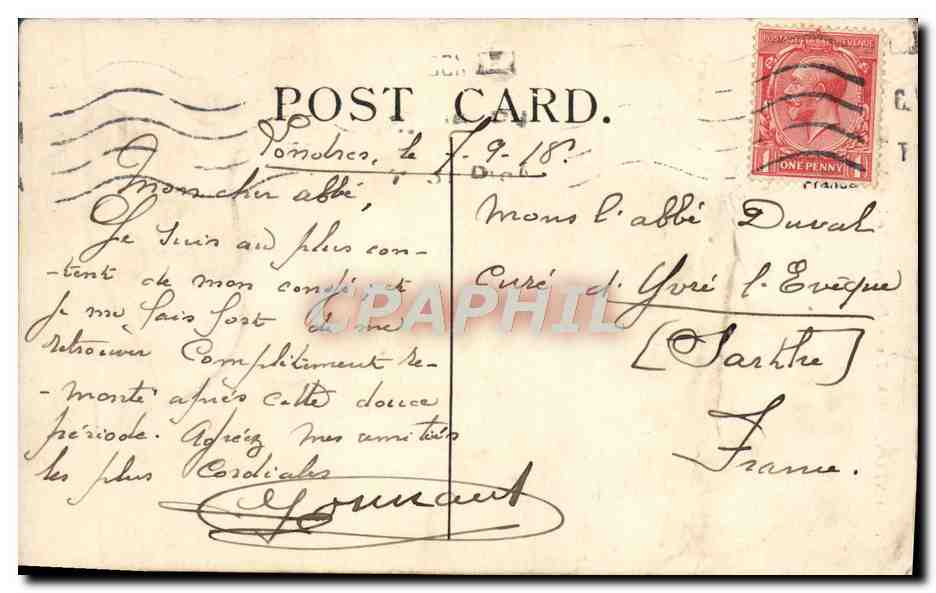 POST CARD.
POSTAGE REVENUE
ONE PENNY
Londres, le 7-9-18.
Mon cher abbé,
Je suis au plus con-
-tent de mon congé et
je me fais fort de me
retrouver Complètement re-
-monté après cette douce
période. Agréez mes amitiés
les plus Cordiales
Mons l'abbé Duval
Curé d'Yvré l'Evêque
(Sarthe)
France.
CPAPHIL